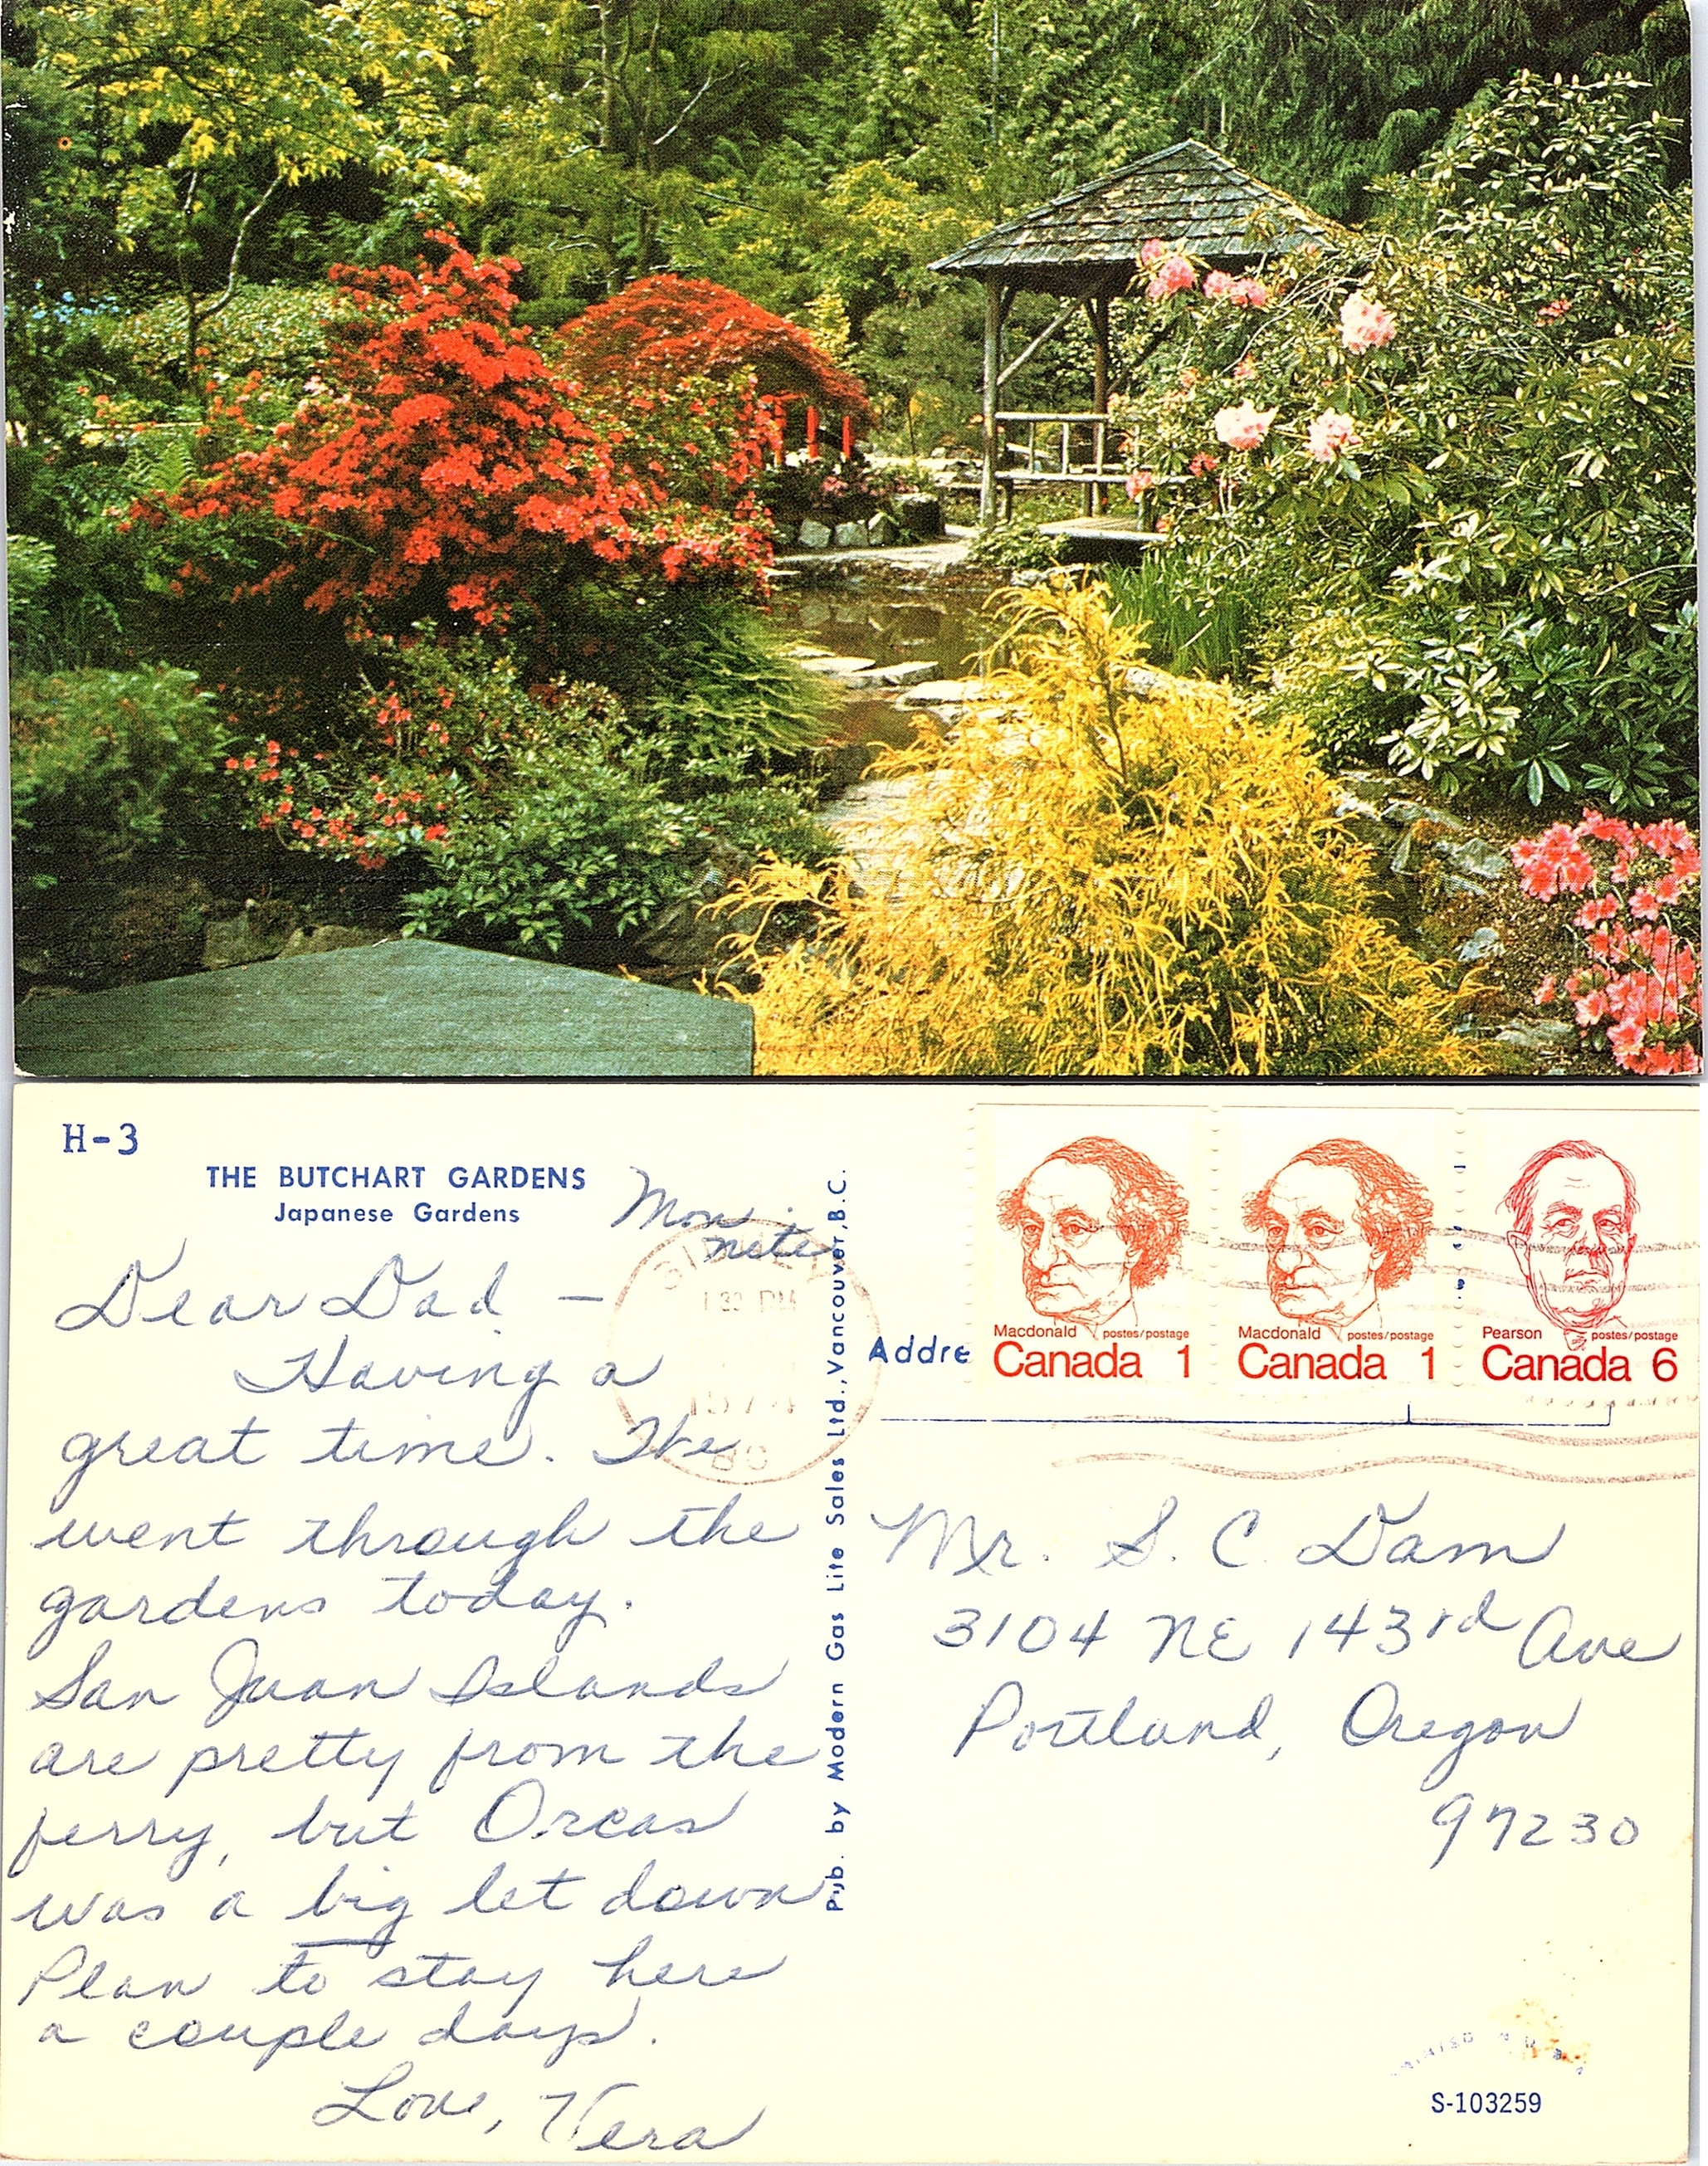 H-3
THE BUTCHART GARDENS
Japanese Gardens
Mon.
nite
Dear Dad —
Having a
great time. We
went through the
gardens today.
San Juan Islands
are pretty from the
ferry, but Orcas
was a big let down
Plan to stay here
a couple days.
Love, Vera
Pub. by Modern Gas Lite Sales Ltd., Vancouver, B.C.
Addre
Macdonald postes/postage
Canada 1
Macdonald postes/postage
Canada 1
Pearson postes/postage
Canada 6
PM
1974
BC
Mr. S. C. Dam
3104 NE 143rd Ave
Portland, Oregon
97230
S-103259